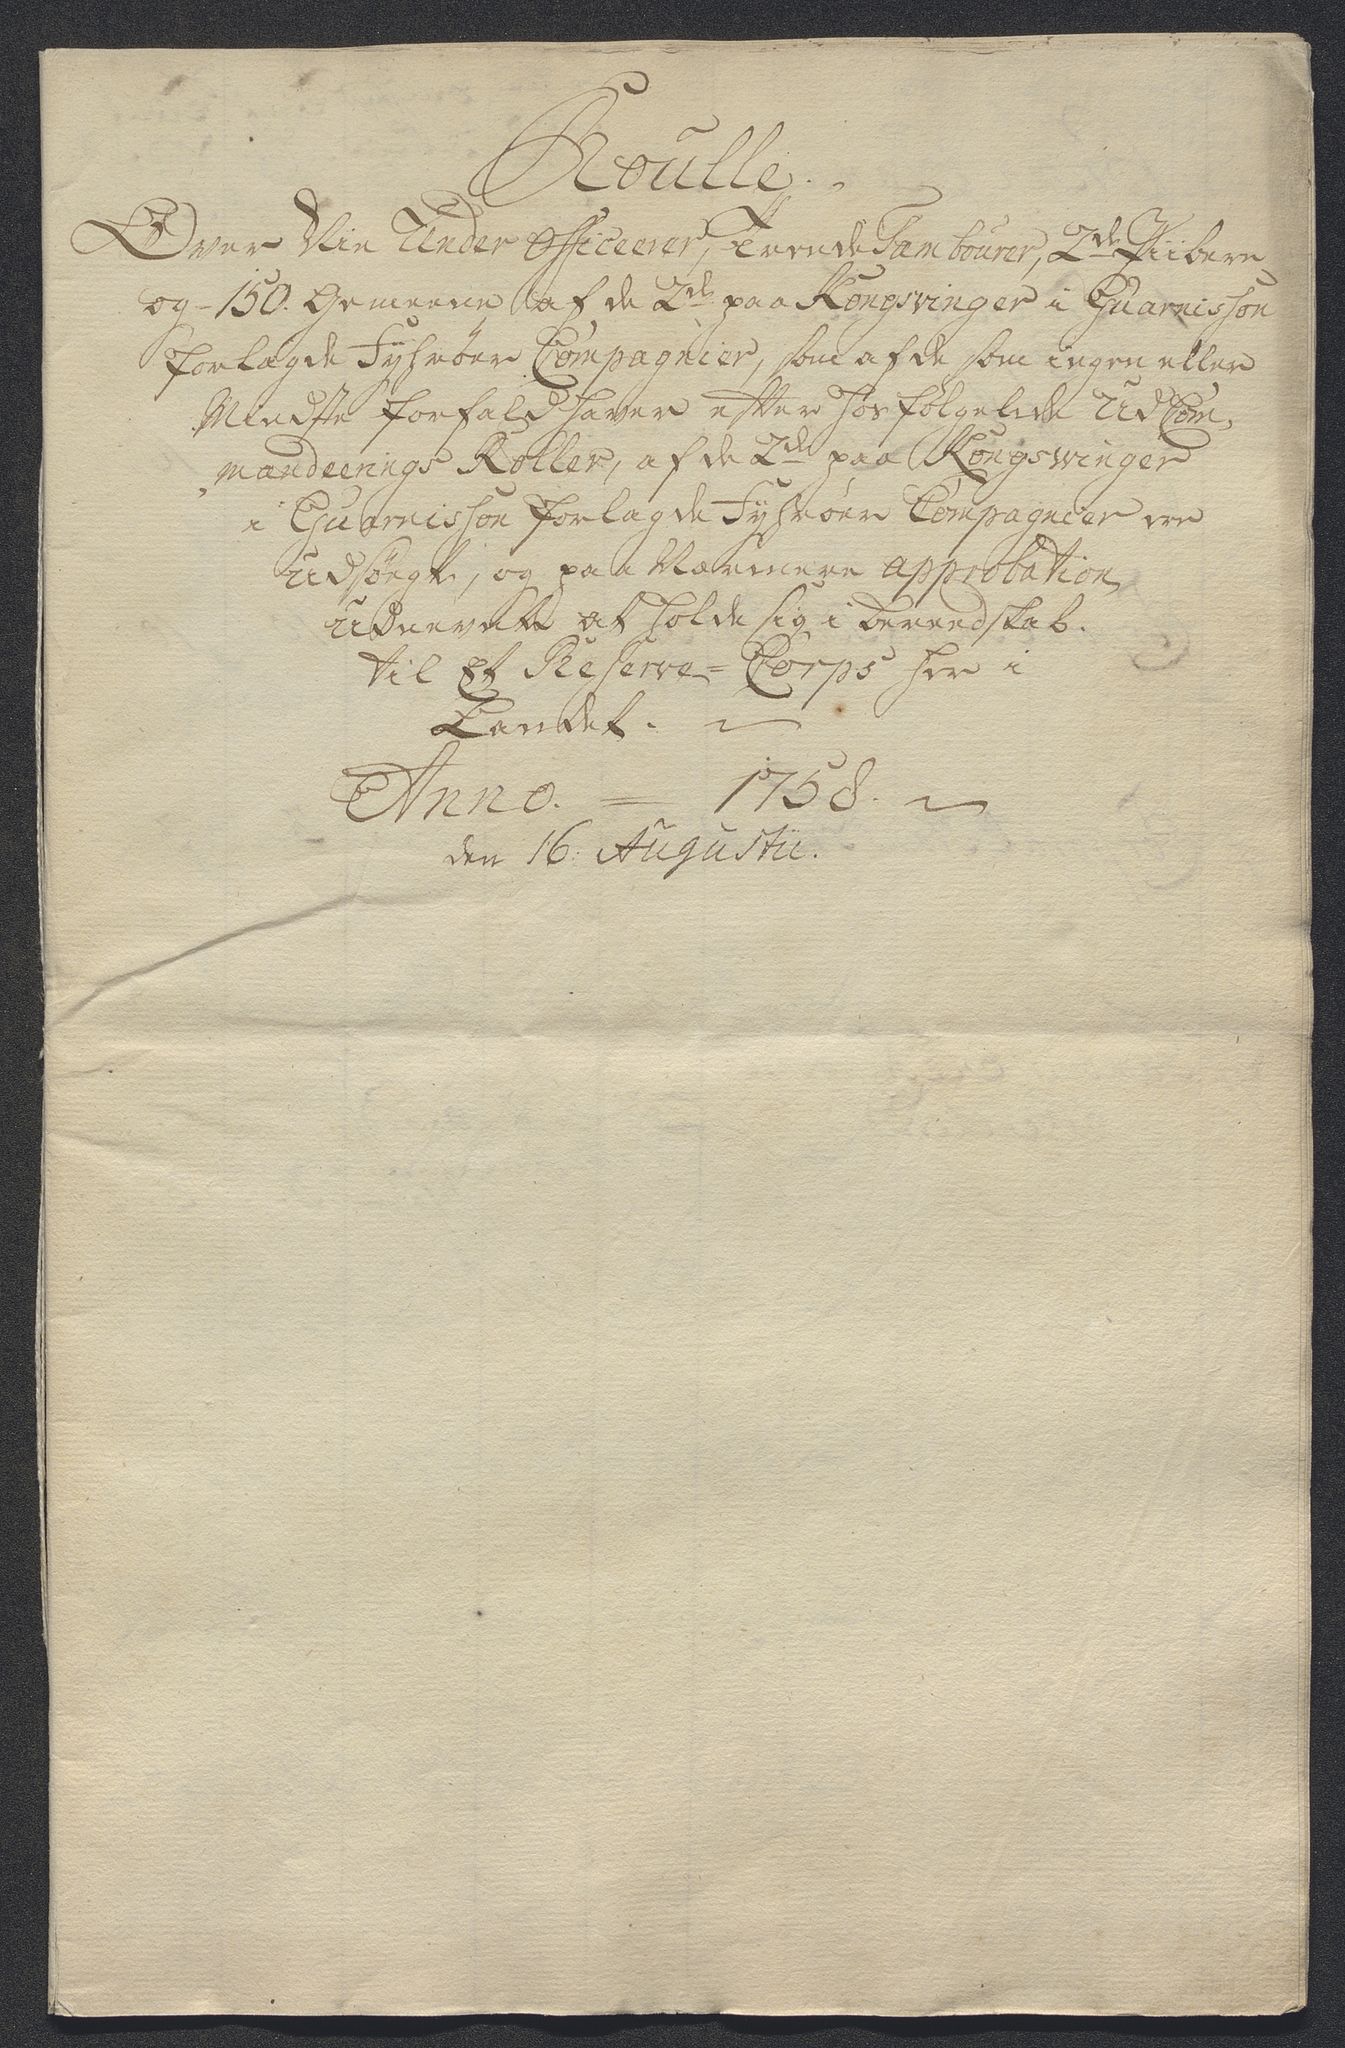 Roulle.
Over Nie Under Officeerer, Trende Tambourer, 2de Piibere
og 150. Gemeene af de 2de paa Kongsvinger i Guarnisson
forlagde Fyhrøer Compagnier, som af de som ingen eller
Mindste forfald haver efter hosfølgende UdCom-
mandeerings Roller, af de 2de paa Kongswinger
i Guarnisson forlagde Fyhrøer Compagnier ere
Udsøgte, og paa Nærmere approbation
Udnevnte at holde sig i bereedskab.
til Et Reserve=Corps her i
Landet.
Anno. = 1758.
den 16. Augustii.